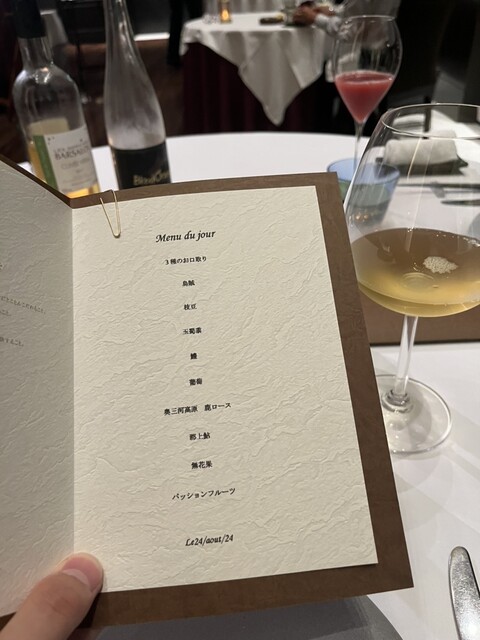 BARSAC
Menu du jour
3種のお口取り
烏賊
枝豆
玉蜀黍
鱧
葡萄
奥三河高原 鹿ロース
郡上鮎
無花果
パッションフルーツ
Le24/aout/24